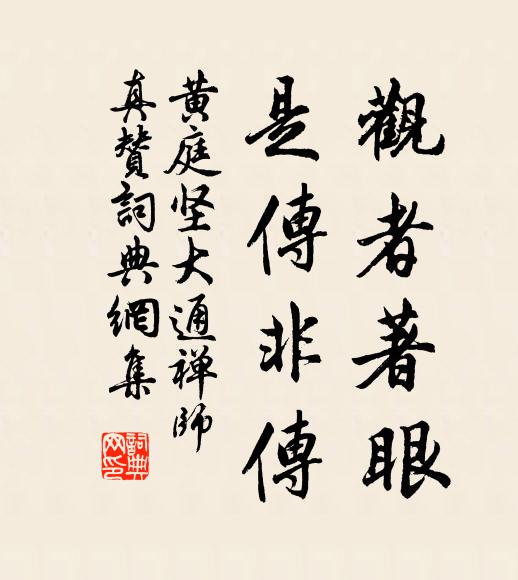 觀者著眼
是傳非傳
黄庭坚大通禅師
真賛詞典網集
詞典網印